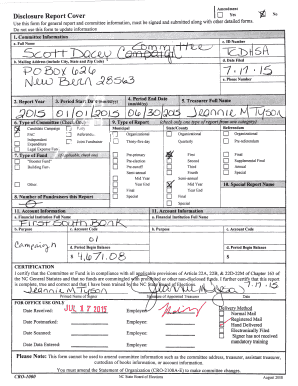 Disclosure Report Cover
Amendment
Yes
No
Use this form for general report and committee information, must be signed and submitted along with other detailed forms.
Do not use this form to update information
1. Committee Information
a. Full Name
c. ID Number
Committee
Scott Dacey Campaign
b. Mailing Address (include City, State and Zip Code)
d. Date Filed
PO Box 626
7-17-15
New Bern 28563
e. Phone Number
2. Report Year
3. Period Start Date
4. Period End Date
5. Treasurer Full Name
2015
01/01/2015
06/30/2015
Jeannie M Tyson
6. Type of Committee
9. Type of Report
Candidate Campaign
Party
Municipal
State/County
Referendum
PAC
Organizational
Organizational
Organizational
Independent Expenditure
Joint Fundraiser
Thirty-five day
Quarterly
Pre-referendum
Legal Expense Fund
Pre-primary
First
Final
7. Type of Fund
Pre-election
Second
Supplemental Final
Pre-runoff
Third
Annual
Building Fund
Semi-annual
Fourth
Special
Mid Year
Semi-annual
Other
Year End
Mid Year
10. Special Report Name
Final
Year End
8. Number of Fundraisers this Report
Special
Final
Special
11. Account Information
11. Account Information
a. Financial Institution Full Name
a. Financial Institution Full Name
First South Bank
b. Purpose
c. Account Code
b. Purpose
c. Account Code
Campaign
01
d. Period Begin Balance
d. Period Begin Balance
$ 4,671.08
$
CERTIFICATION
I certify that the Committee or Fund is in compliance with all applicable provisions of Article 22A, 22B, & 22D-22M of Chapter 163 of
the NC General Statutes and that no funds are commingled with prohibited or other non-disclosed funds. I further certify that this report
is complete, true and correct and that I have been trained by the NC State Board of Elections.
7-17-15
Jeannie M Tyson
Printed Name of Signer
Signature of Appointed Treasurer
Date
FOR OFFICE USE ONLY
Delivery Method
Date Received:
JUL 17 2015
Employee:
Normal Mail
Registered Mail
Date Postmarked:
Employee:
Hand Delivered
Electronically Filed
Date Scanned:
Employee:
Signer has not received
mandatory training
Date Data Entered:
Employee:
Please Note: This form cannot be used to amend committee information such as the committee address, treasurer, assistant treasurer,
custodian of books information, or account information.
You must amend the Statement of Organization (CRO-2100A-E) to make committee changes.
CRO-1000
NC State Board of Elections
August 2008